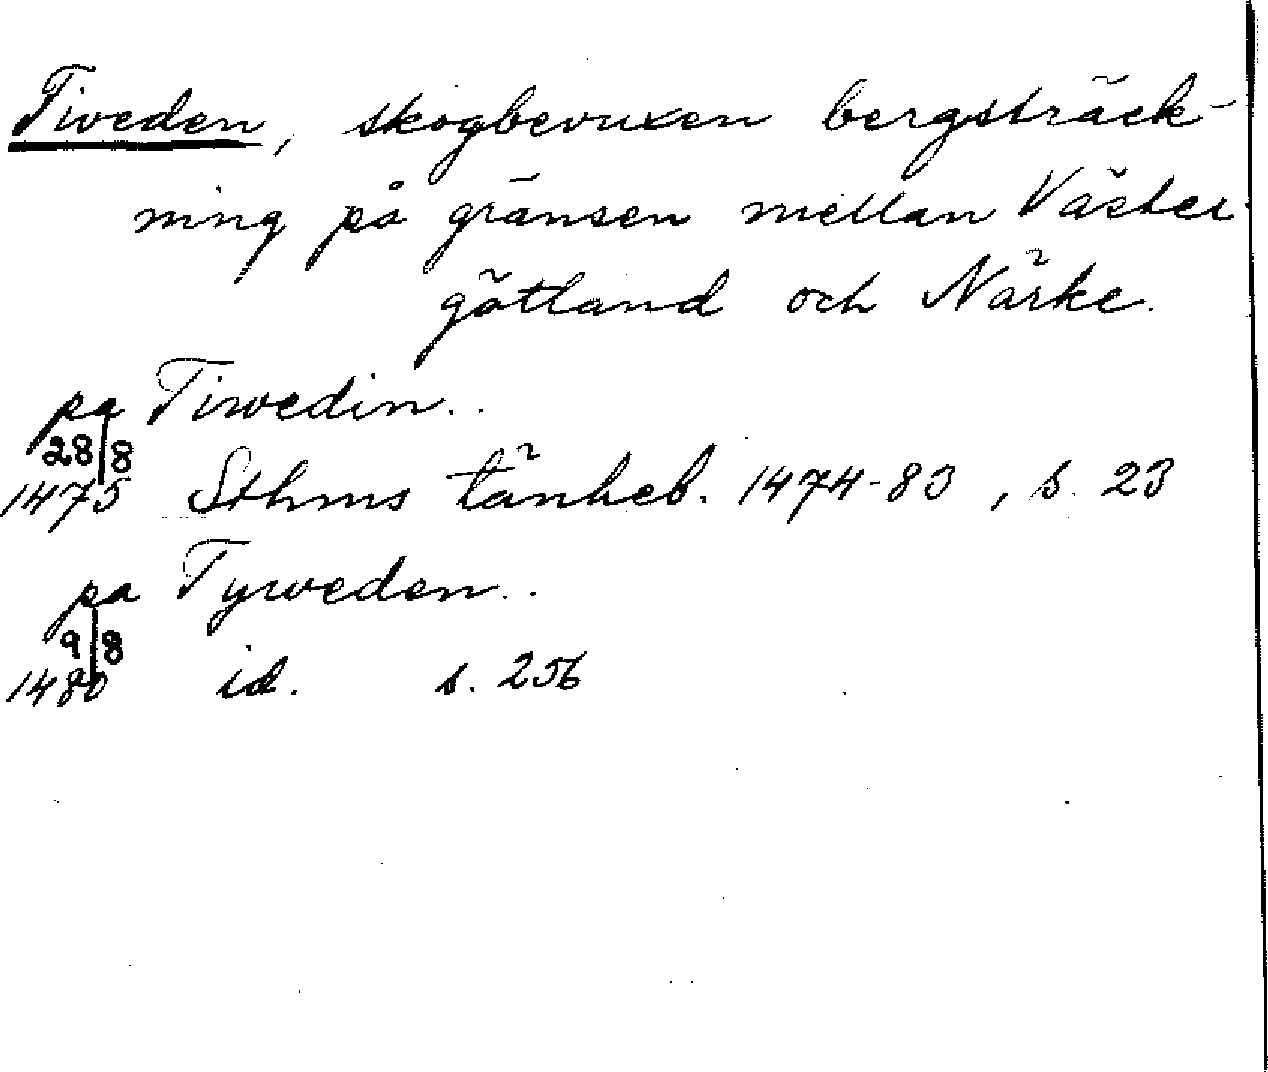 Tiveden, skogbevuxen bergsträck-
ning på gränsen mellan Väster-
götland och Närke.
pa Tiwedin..
28/8
1475 Sthms tänkeb. 1474-83, s. 23
pa Tyweden..
9/8
1480 id. s. 256